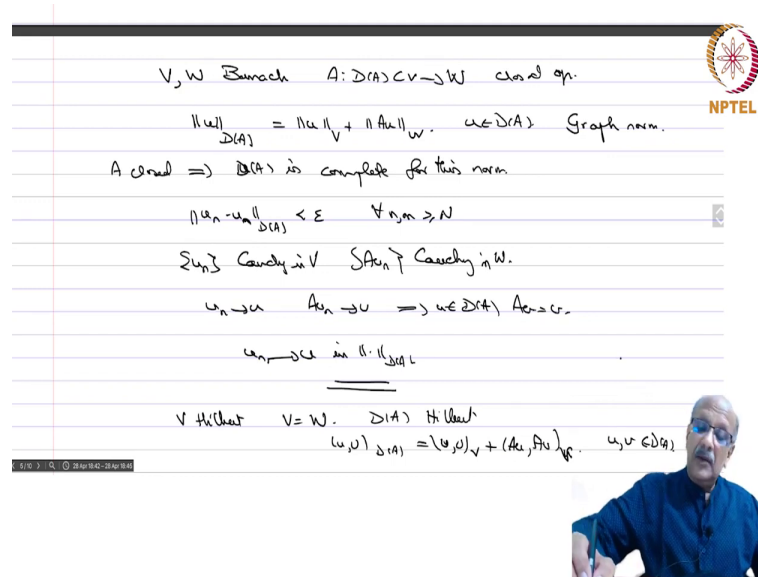 V, W Banach A: D(A) ⊂ V → W closed op.
NPTEL
‖u‖_{D(A)} = ‖u‖_V + ‖Au‖_W. u ∈ D(A) Graph norm.
A closed ⇒ D(A) is complete for this norm.
‖u_n - u_m‖_{D(A)} < ε ∀ n, m ≥ N
{u_n} Cauchy in V {Au_n} Cauchy in W.
u_n → u Au_n → v ⇒ u ∈ D(A) Au = v.
u_n → u in ‖·‖_{D(A)}.
V Hilbert V = W. D(A) Hilbert
(u,v)_{D(A)} = (u,v)_V + (Au, Av)_V. u, v ∈ D(A)
5/10 28 Apr 18:42 - 28 Apr 18:45